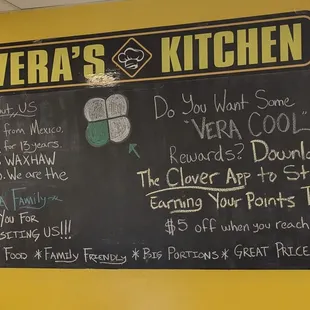 VERA'S KITCHEN
OUT US
FROM MEXICO.
FOR 13 YEARS.
WAXHAW
WE ARE THE
FAMILY
YOU FOR
SITING US!!!
DO YOU WANT SOME
"VERA COOL"
REWARDS? DOWNLO
THE CLOVER APP TO ST
EARNING YOUR POINTS T
$5 OFF WHEN YOU REACH
FOOD * FAMILY FRIENDLY * BIG PORTIONS * GREAT PRICE